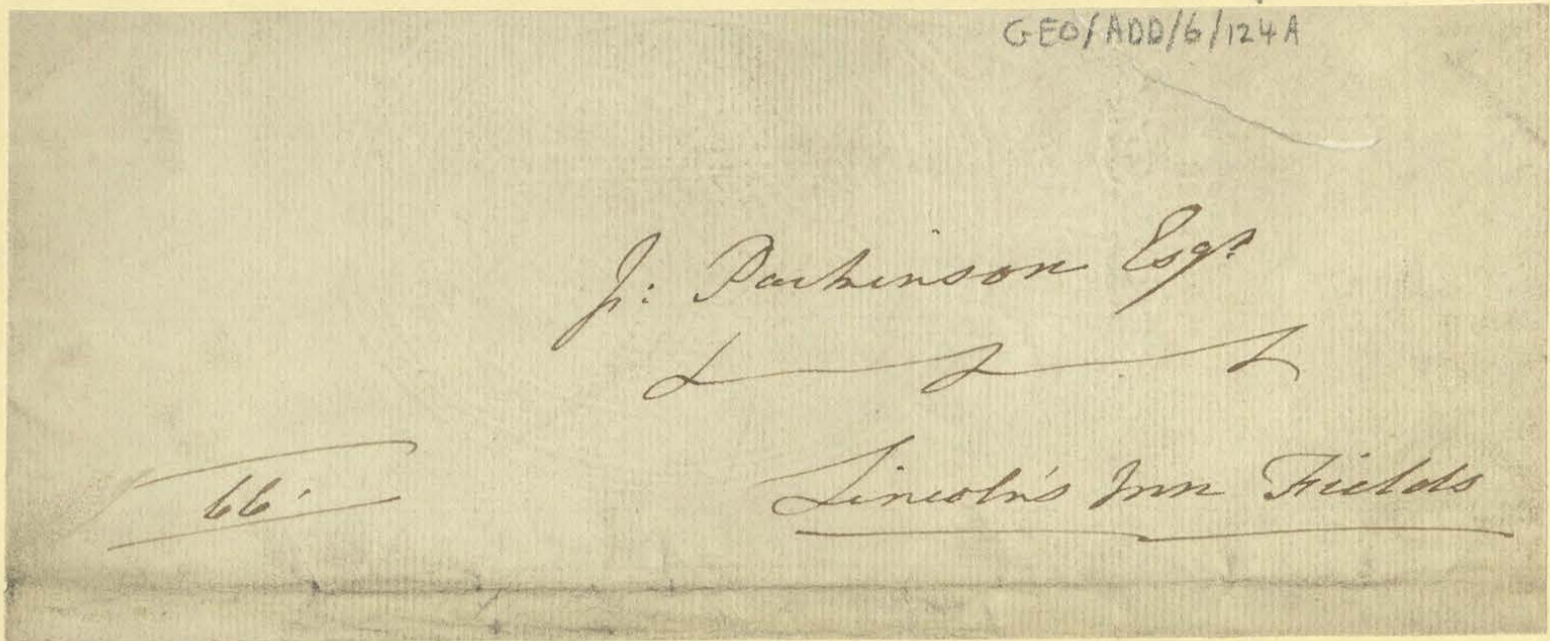 GEO/ADD/6/124A
J: Parkinson Esqr
66
Lincoln's Inn Fields